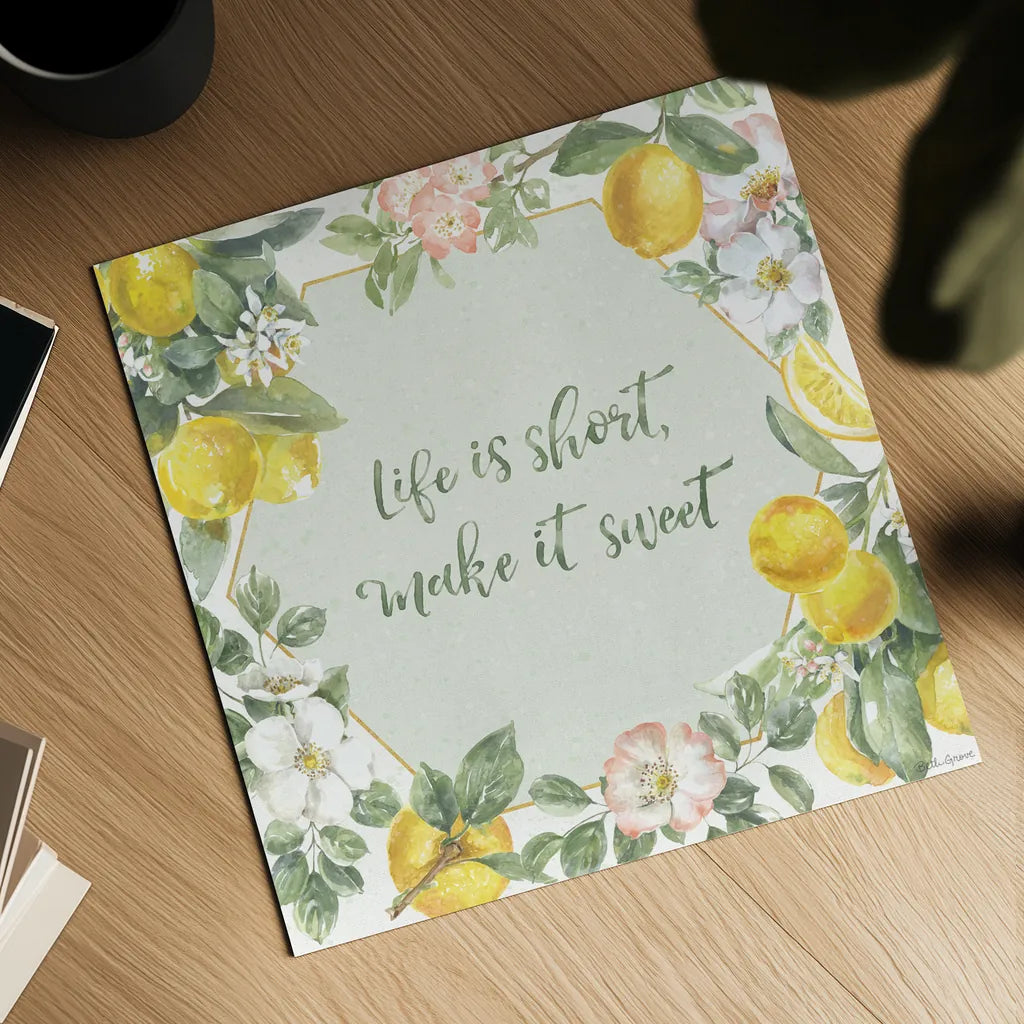 Life is short,
make it sweet
Beth Grove